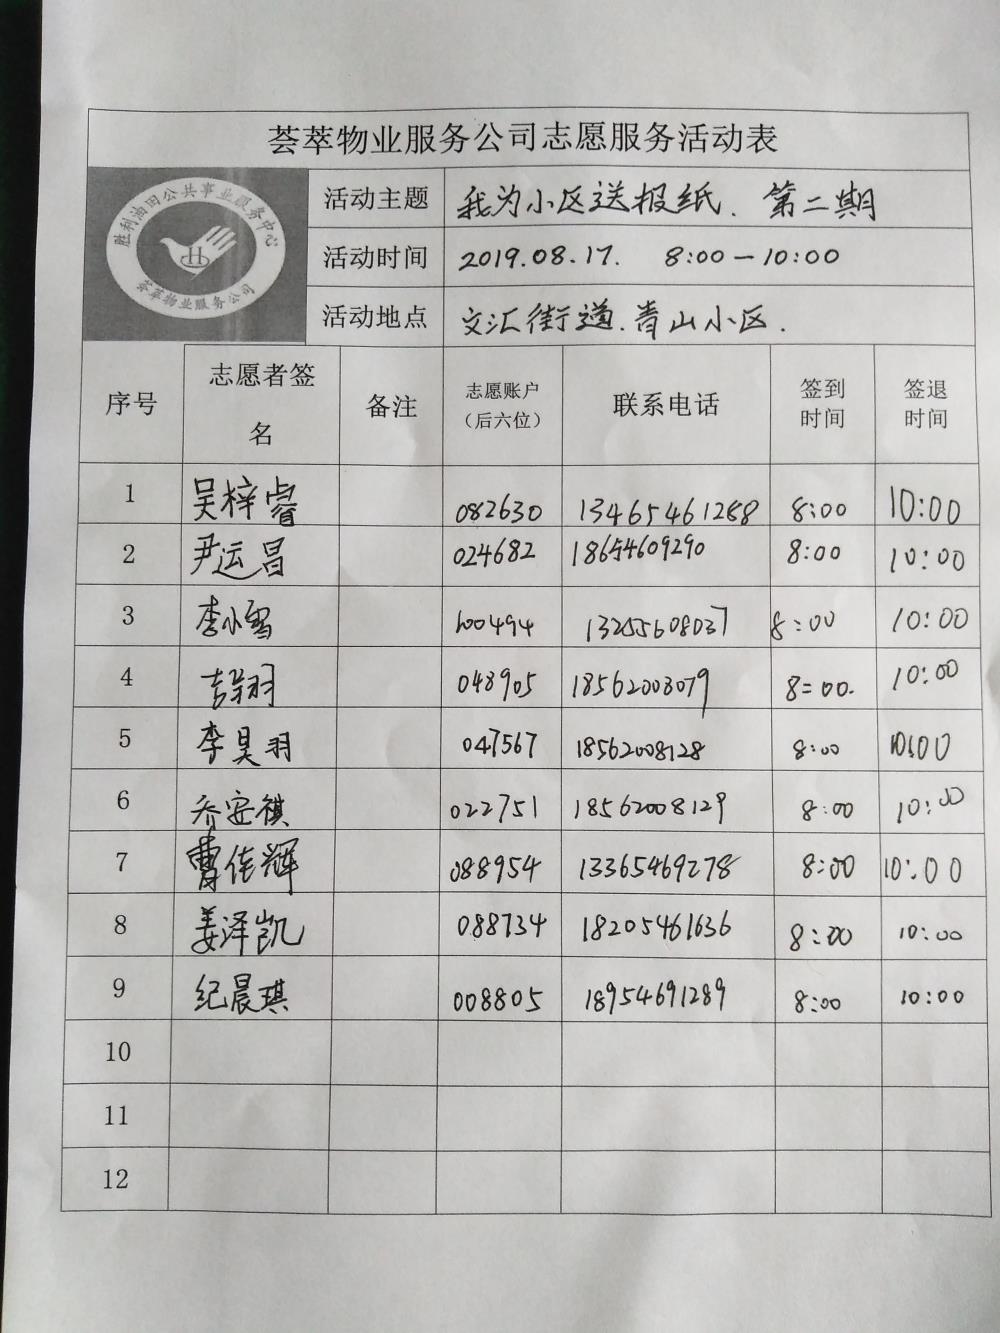 荟萃物业服务公司志愿服务活动表
胜利油田公共事业服务中心
荟萃物业服务公司
活动主题 我为小区送报纸、第二期
活动时间 2019.08.17. 8:00—10:00
活动地点 文汇街道.青山小区.
序号 志愿者签名 备注 志愿账户（后六位） 联系电话 签到时间 签退时间
1 吴梓睿 082630 13465461288 8:00 10:00
2 尹运昌 024682 18654609290 8:00 10:00
3 李小雪 100494 13255608037 8:00 10:00
4 048905 18562003079 8=00. 10:00
5 李昊羽 047567 18562008128 8:00 10:00
6 乔安祺 022751 18562008129 8:00 10:00
7 曹佳辉 088954 13365469278 8:00 10:00
8 姜泽凯 088734 18205461636 8:00 10:00
9 纪晨琪 008805 18954691289 8:00 10:00
10
11
12